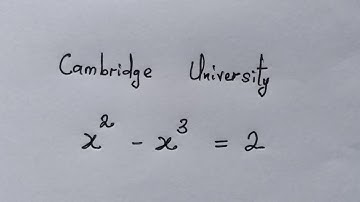 Cambridge University
x² - x³ = 2